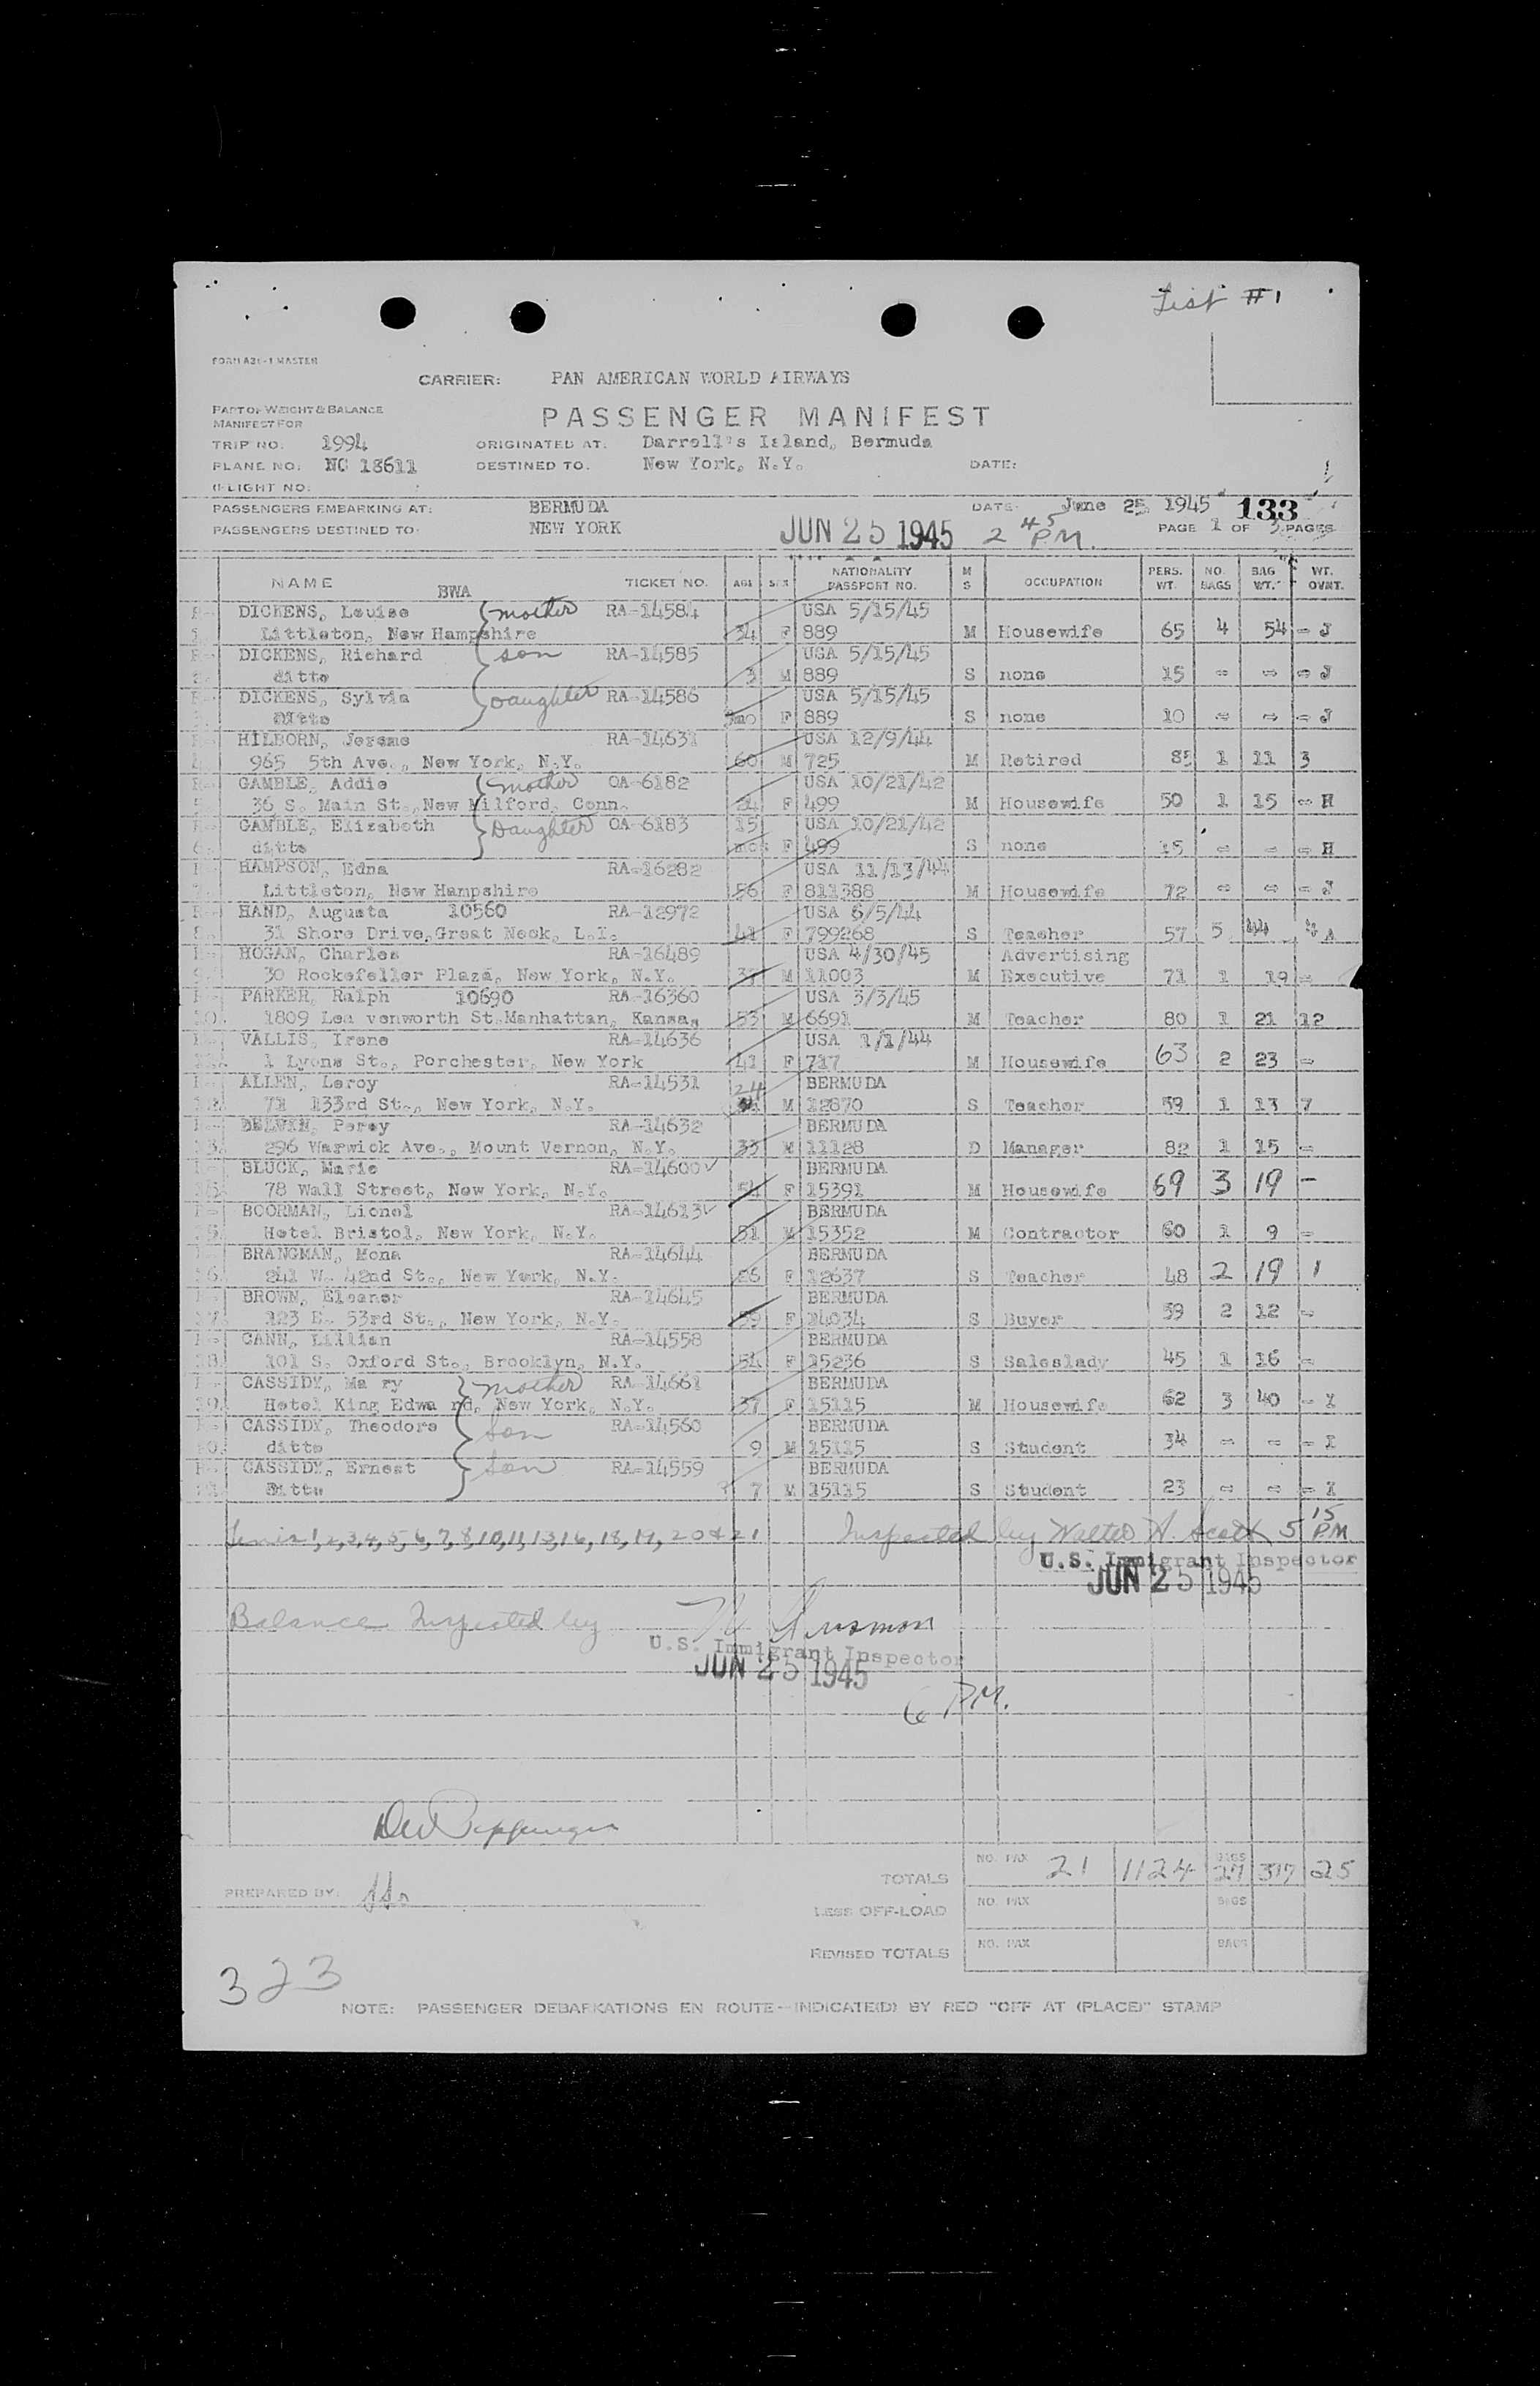 List #1
FORM A36-1 MASTER
CARRIER: PAN AMERICAN WORLD AIRWAYS
PART OF WEIGHT & BALANCE
MANIFEST FOR
PASSENGER MANIFEST
TRIP NO. 1994 ORIGINATED AT: Darrell's Island, Bermuda
PLANE NO. NC 18611 DESTINED TO. New York, N.Y. DATE:
FLIGHT NO.
PASSENGERS EMBARKING AT: BERMUDA DATE: June 25 1945 133
PASSENGERS DESTINED TO: NEW YORK JUN 25 1945 2 45 PM. PAGE 1 OF 3 PAGES
NAME BWA TICKET NO. AGE SEX NATIONALITY PASSPORT NO. M S OCCUPATION PERS. WT. NO. BAGS BAG WT. WT. OVWT.
DICKENS, Louise mother RA-14584 USA 5/15/45
Littleton, New Hampshire 34 F 889 M Housewife 65 4 54 - J
DICKENS, Richard son RA-14585 USA 5/15/45
ditto 3 M 889 S none 15 - - - J
DICKENS, Sylvia Daughter RA-14586 USA 5/15/45
Ditto mo F 889 S none 10 - - - J
HILBORN, Jerome RA-14631 USA 12/9/44
965 5th Ave., New York, N.Y. 60 M 725 M Retired 85 1 11 3
GAMBLE, Addie mother OA-6182 USA 10/21/42
36 S. Main St., New Milford, Conn. 24 F 499 M Housewife 50 1 15 - H
GAMBLE, Elizabeth Daughter OA-6183 15 USA 10/21/42
ditto mos F 499 S none 15 - - - H
HAMPSON, Edna RA-16282 USA 11/13/44
Littleton, New Hampshire 56 F 811388 M Housewife 72 - - - J
HAND, Augusta 10560 RA-12972 USA 6/5/44
31 Shore Drive, Great Neck, L.I. 41 F 799268 S Teacher 57 5 44 4 A
HOGAN, Charles RA-16489 USA 4/30/45 Advertising
30 Rockefeller Plaza, New York, N.Y. 37 M 11003 M Executive 71 1 19 -
PARKER, Ralph 10690 RA-16360 USA 3/3/45
1809 Lea venworth St. Manhattan, Kansas 53 M 6691 M Teacher 80 1 21 12
VALLIS, Irene RA-14636 USA 1/1/44
1 Lyons St., Porchester, New York 41 F 717 M Housewife 63 2 23 -
ALLEN, Leroy RA-14531 24 BERMUDA
71 133rd St., New York, N.Y. M 12870 S Teacher 59 1 13 7
BELVIN, Percy RA-14632 BERMUDA
296 Warwick Ave., Mount Vernon, N.Y. 33 M 11128 D Manager 82 1 15 -
BLUCK, Marie RA-14600 ✓ BERMUDA
78 Wall Street, New York, N.Y. 54 F 15391 M Housewife 69 3 19 -
BOORMAN, Lionel RA-14613 ✓ BERMUDA
Hotel Bristol, New York, N.Y. 51 M 15352 M Contractor 60 1 9 -
BRANGMAN, Mona RA-14644 BERMUDA
241 W. 42nd St., New York, N.Y. 26 F 12637 S Teacher 48 2 19 1
BROWN, Eleanor RA-14645 BERMUDA
123 E. 53rd St., New York, N.Y. 59 F 14034 S Buyer 59 2 12 -
CANN, Lillian RA-14558 BERMUDA
101 S. Oxford St., Brooklyn, N.Y. 54 F 15236 S Saleslady 45 1 16 -
CASSIDY, Ma ry mother RA-14661 BERMUDA
Hotel King Edwa rd, New York, N.Y. 37 F 15115 M Housewife 62 3 40 - I
CASSIDY, Theodore son RA-14560 BERMUDA
ditto 9 M 15115 S Student 34 - - - I
CASSIDY, Ernest son RA-14559 BERMUDA
Ditto 7 M 15115 S Student 23 - - - I
Lines 1, 2, 3, 4, 5, 6, 7, 8, 10, 11, 13, 16, 18, 19, 20 & 21 Inspected by Walter A. Scott 5 15 PM
U.S. Immigrant Inspector
JUN 25 1945
Balance Inspected by
U.S. Immigrant Inspector
JUN 25 1945
6 PM.
TOTALS NO. PAX 21 1124 BAGS 29 317 25
PREPARED BY:
LESS OFF-LOAD NO. PAX BAGS
REVISED TOTALS NO. PAX BAGS
323
NOTE: PASSENGER DEBARKATIONS EN ROUTE—INDICATE(D) BY RED "OFF AT (PLACE)" STAMP